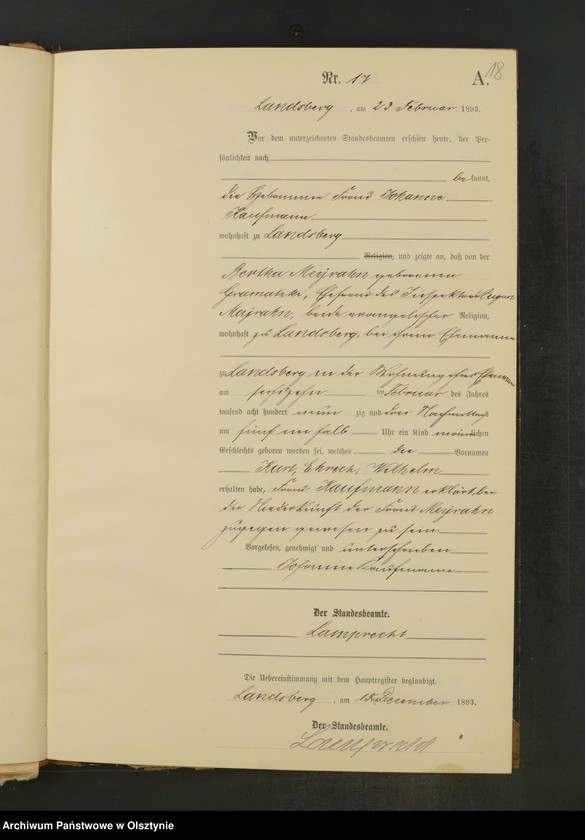 18
Nr. 17 A.
Landsberg, am 23. Februar 1893.
Vor dem unterzeichneten Standesbeamten erschien heute, der Per-
sönlichkeit nach
bekannt,
die Hebamme Frau Johanne
Kaufmann
wohnhaft zu Landsberg
Religion, und zeigte an, daß von der
Bertha Meyrahn geborenen
Gramatzki, Ehefrau des Inspektors August
Mayrahn, beide evangelischer Religion,
wohnhaft zu Landsberg, bei ihrem Ehemanne
zu Landsberg in der Wohnung ihres Ehemannes
am sechszehn ten Februar des Jahres
tausend acht hundert neun zig und drei Nachmittags
um fünf ein halb Uhr ein Kind männlichen
Geschlechts geboren worden sei, welches die Vornamen
Kurt, Ehrich, Wilhelm
erhalten habe. Frau Kaufmann erklärt, bei
der Niederkunft der Frau Meyrahn
zugegen gewesen zu sein
Vorgelesen, genehmigt und unterschrieben
Johanne Kaufmann
Der Standesbeamte.
Lamprecht
Die Uebereinstimmung mit dem Hauptregister beglaubigt.
Landsberg, am December 1893.
Der Standesbeamte.
Lamprecht
Archiwum Państwowe w Olsztynie